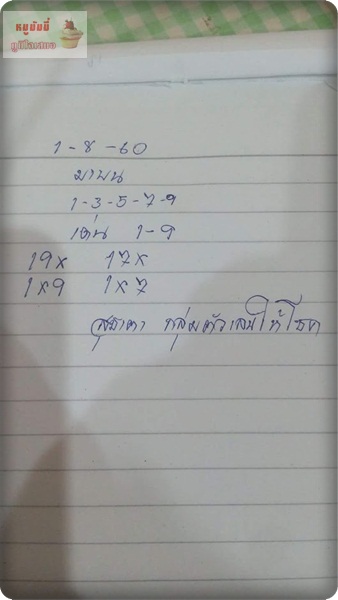 หมูบันนี่
ภูมิใจเสนอ
1-8-60
มาบน
1-3-5-7-9
เด่น 1-9
19x 17x
1x9 1x7
สุชาดา กลุ่มตัวเลขให้โชค